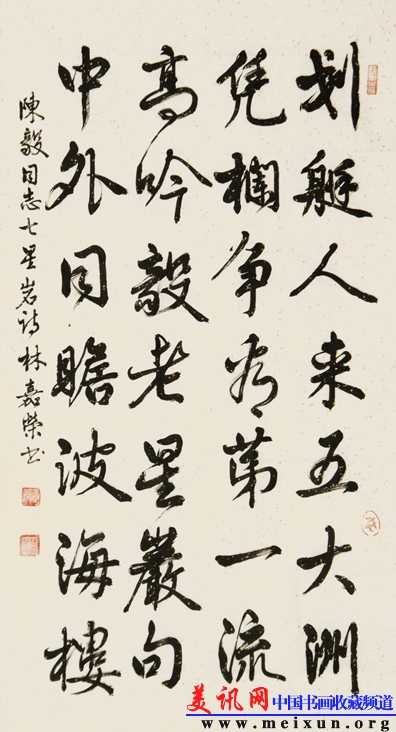 划艇人来五大洲
凭欄争看第一流
高吟毅老星巖句
中外同瞻波海樓
陳毅同志七星岩诗林嘉榮书
美讯网 中国书画收藏频道
www.meixun.org